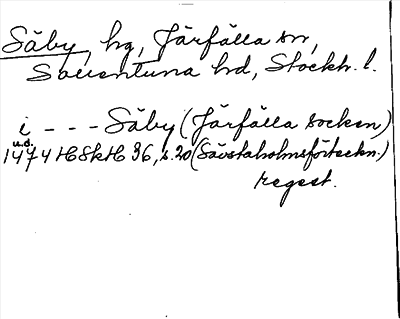 Säby, hg, Järfälla sn,
Sollentuna hd, Stockh. l.
i - - - Säby (Järfälla socken)
u.d.
1474 HSkH 36, s. 20 (Sävstaholmsförteckn.)
regest.